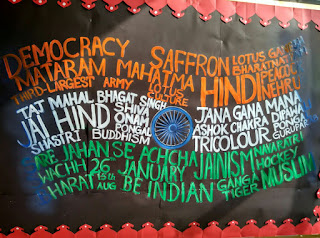 DEMOCRACY SAFFRON LOTUS
MATARAM MAHATMA
THIRD-LARGEST ARMY LOTUS CULTURE HINDI PEACOCK NEHRU
TAJ MAHAL BHAGAT SINGH JANA GANA MANA
JAI HIND SHAH ONAM ASHOK CHAKRA
SHASTRI PONGAL BUDDHISM TRICOLOUR
SARE JAHAN SE ACHCHA JAINISM NAVARATRI
26 JANUARY HOCKEY
BHARAT 15th AUG BE INDIAN GANGA TIGER MUSLIM